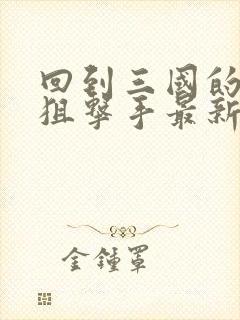 回到三國的
狙擊手最新
金鍾罩